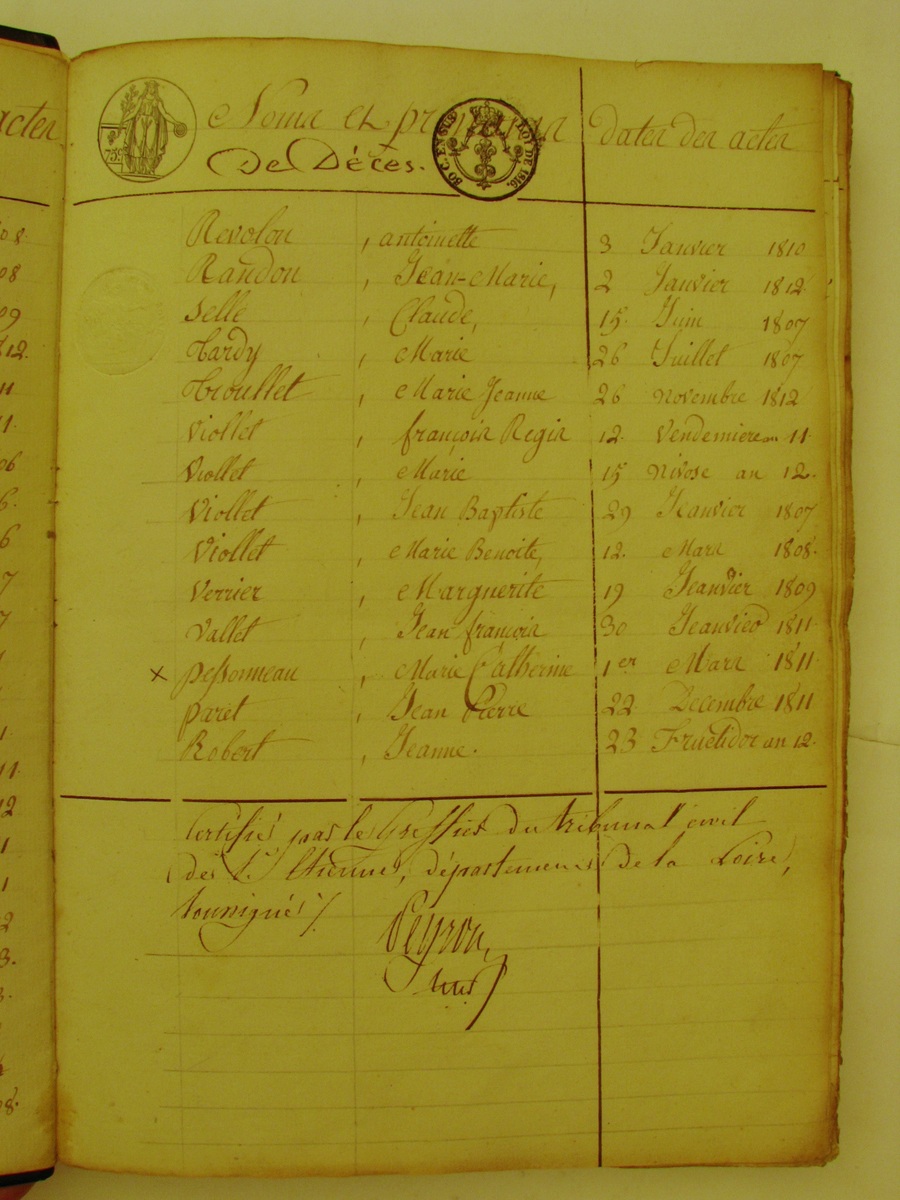 Noms et prénoms dates des actes
De Décès.
80 C. EN SUS LOI DE 1816.
75
Revolon , antoinette 3 Janvier 1810
Randon , Jean-Marie, 2 Janvier 1812
Selle , Claude, 15. Juin 1807
Hardy , Marie 26 Juillet 1807
, Marie Jeanne 26 Novembre 1812
Viollet , françois Regis 12. Vendemiere an 11
Viollet , Marie 15 Nivose an 12.
Viollet , Jean Baptiste 29 Jeanvier 1807
Viollet , Marie Benoite, 12. Mars 1808.
Verrier , Marguerite 19 Jeanvier 1809
Vallet , Jean françois 30 Jeanvier 1811
x pessonneau , Marie Catherine 1er Mars 1811
paret , Jean Pierre 22 Decembre 1811
Robert , Jeanne. 23 Fructidor an 12.
Certifié par le Greffier du tribunal civil
de St. Etienne, département de la Loire,
soussigné ./.
Peyron,
actes
08.
08
09
12.
11
11.
06
6.
6
7
7
1.
11
12
1
1
2
3.
3.
08.